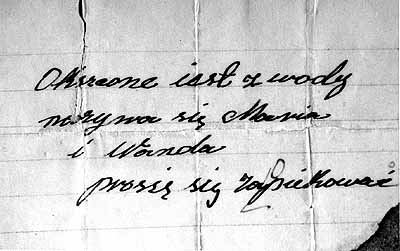 Okszone jest z wody
nazywa się Maria
i Wanda
prosię się zapiekować